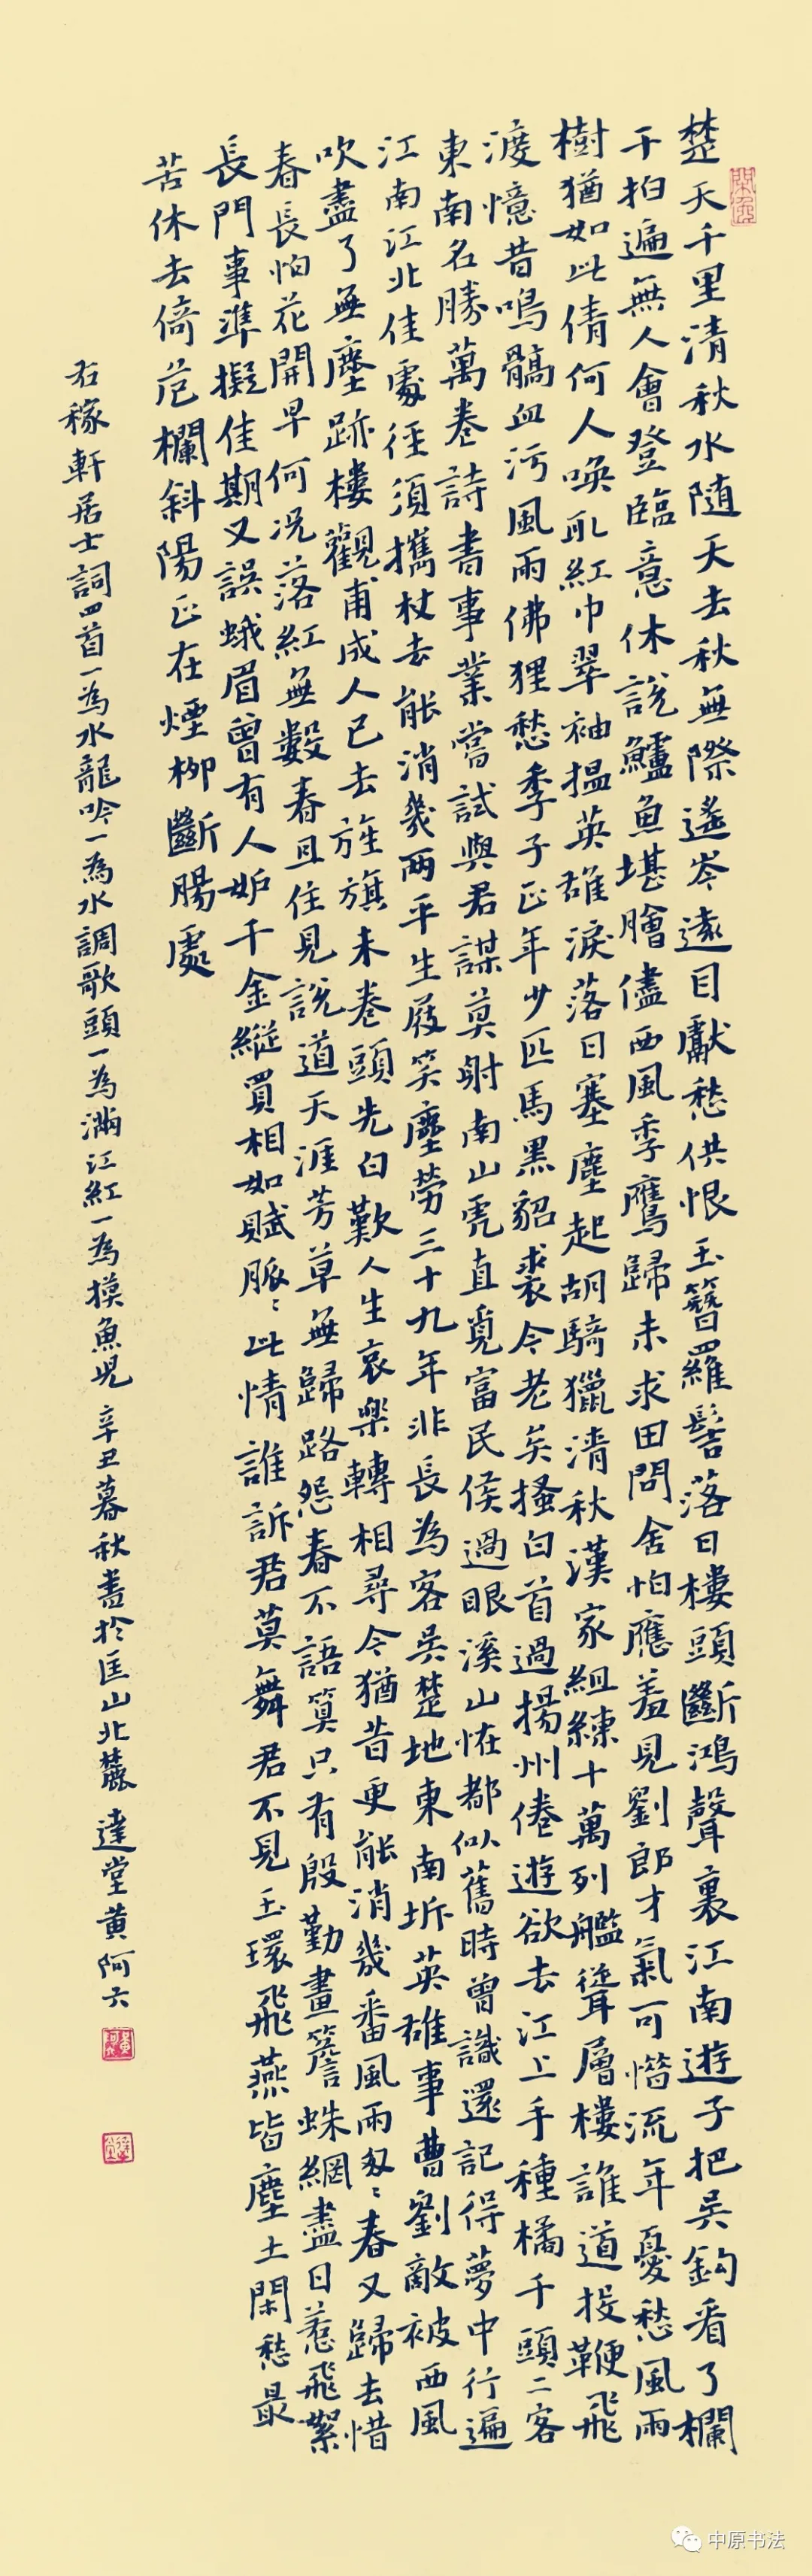 楚天千里清秋水随天去秋無際遙岑遠目獻愁供恨玉簪羅髻落日樓頭斷鴻聲裏江南遊子把吳鈎看了欄
干拍遍無人會登臨意休說鱸魚堪膾儘西風季鷹歸未求田問舍怕應羞見劉郎才氣可惜流年憂愁風雨
樹猶如此倩何人喚取紅巾翠袖揾英雄淚落日塞塵起胡騎獵清秋漢家組練十萬列艦聳層樓誰道投鞭飛
渡憶昔鳴髇血污風雨佛狸愁季子正年少匹馬黑貂裘今老矣搔白首過揚州倦遊欲去江上手種橘千頭二客
東南名勝萬卷詩書事業嘗試與君謀莫射南山虎直覓富民侯過眼溪山怪都似舊時曾識還記得夢中行遍
江南江北佳處徑須攜杖去能消幾兩平生屐笑塵勞三十九年非長為客吳楚地東南坼英雄事曹劉敵被西風
吹盡了無塵跡樓觀甫成人已去旌旗未卷頭先白歎人生哀樂轉相尋今猶昔更能消幾番風雨匆〻春又歸去惜
春長怕花開早何況落紅無數春且住見說道天涯芳草無歸路怨春不語算只有殷勤畫簷蛛網盡日惹飛絮
長門事準擬佳期又誤蛾眉曾有人妒千金縱買相如賦脈〻此情誰訴君莫舞君不見玉環飛燕皆塵土閑愁最
苦休去倚危欄斜陽正在煙柳斷腸處
右稼軒居士詞四首一為水龍吟一為水調歌頭一為滿江紅一為摸魚兒 辛丑暮秋書於匡山北麓 達堂黃阿六
中原书法